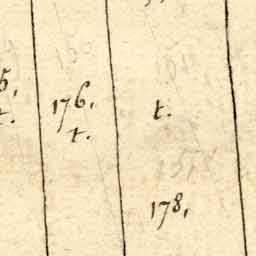 5.
t.
176.
t.
t.
178.